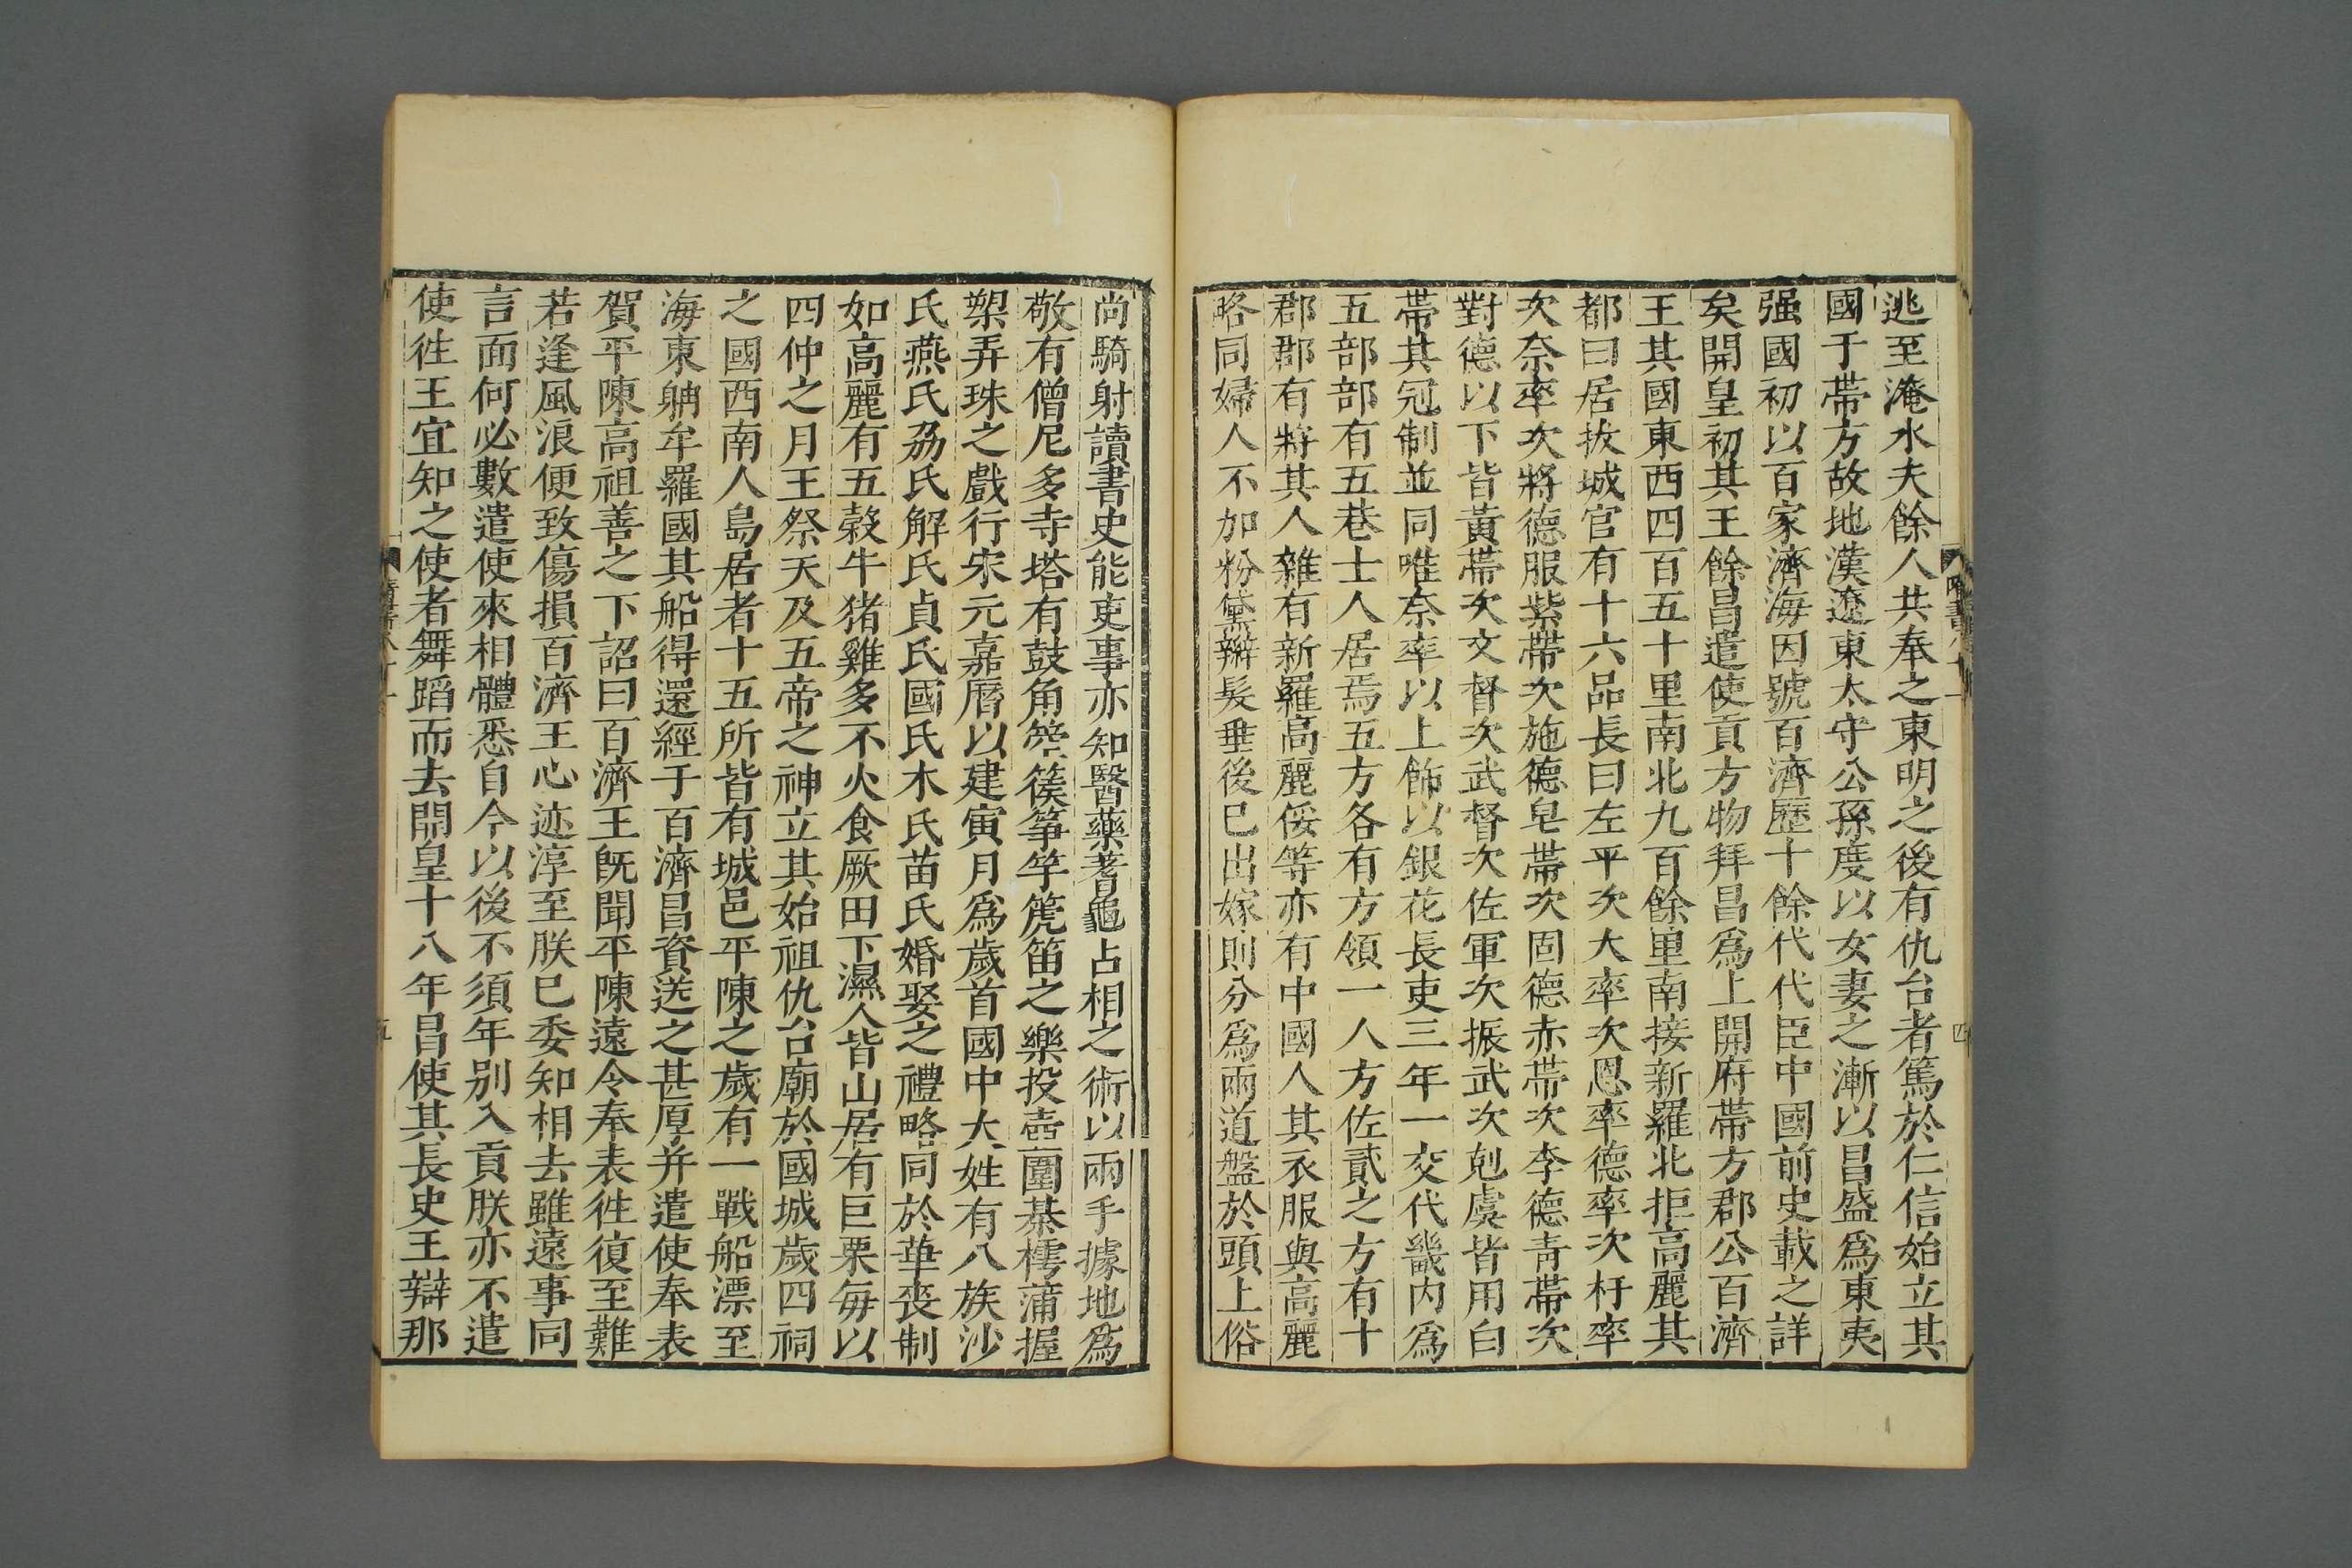 逃至淹水夫餘人共奉之東明之後有仇台者篤於仁信始立其
國于帶方故地漢遼東太守公孫度以女妻之漸以昌盛爲東夷
强國初以百家濟海因號百濟歷十餘代代臣中國前史載之詳
矣開皇初其王餘昌遣使貢方物拜昌爲上開府帶方郡公百濟
王其國東西四百五十里南北九百餘里南接新羅北拒高麗其
都曰居拔城官有十六品長曰左平次大率次恩率德率次杅率
次奈率次將德服紫帶次施德皂帶次固德赤帶次李德青帶次
對德以下皆黃帶次文督次武督次佐軍次振武次剋虞皆用白
帶其冠制並同唯奈率以上飾以銀花長吏三年一交代畿内爲
五部部有五巷士人居焉五方各有方領一人方佐貳之方有十
郡郡有將其人雜有新羅高麗倭等亦有中國人其衣服與高麗
略同婦人不加粉黛辮髮垂後已出嫁則分爲兩道盤於頭上俗
尚騎射讀書史能吏事亦知醫藥蓍龜占相之術以兩手據地爲
敬有僧尼多寺塔有鼓角箜篌筝竽篪笛之樂投壺圍棊樗蒲握
槊弄珠之戲行宋元嘉曆以建寅月爲歲首國中大姓有八族沙
氏燕氏刕氏解氏貞氏國氏木氏苗氏婚娶之禮略同於華喪制
如高麗有五穀牛猪雞多不火食厥田下濕人皆山居有巨栗每以
四仲之月王祭天及五帝之神立其始祖仇台廟於國城歲四祠
之國西南人島居者十五所皆有城邑平陳之歲有一戰船漂至
海東䑳牟羅國其船得還經于百濟昌資送之甚厚并遣使奉表
賀平陳高祖善之下詔曰百濟王既聞平陳遠令奉表徃復至難
若逢風浪便致傷損百濟王心迹淳至朕已委知相去雖遠事同
言面何必數遣使來相體悉自今以後不須年別入貢朕亦不遣
使徃王宜知之使者舞蹈而去開皇十八年昌使其長史王辯那